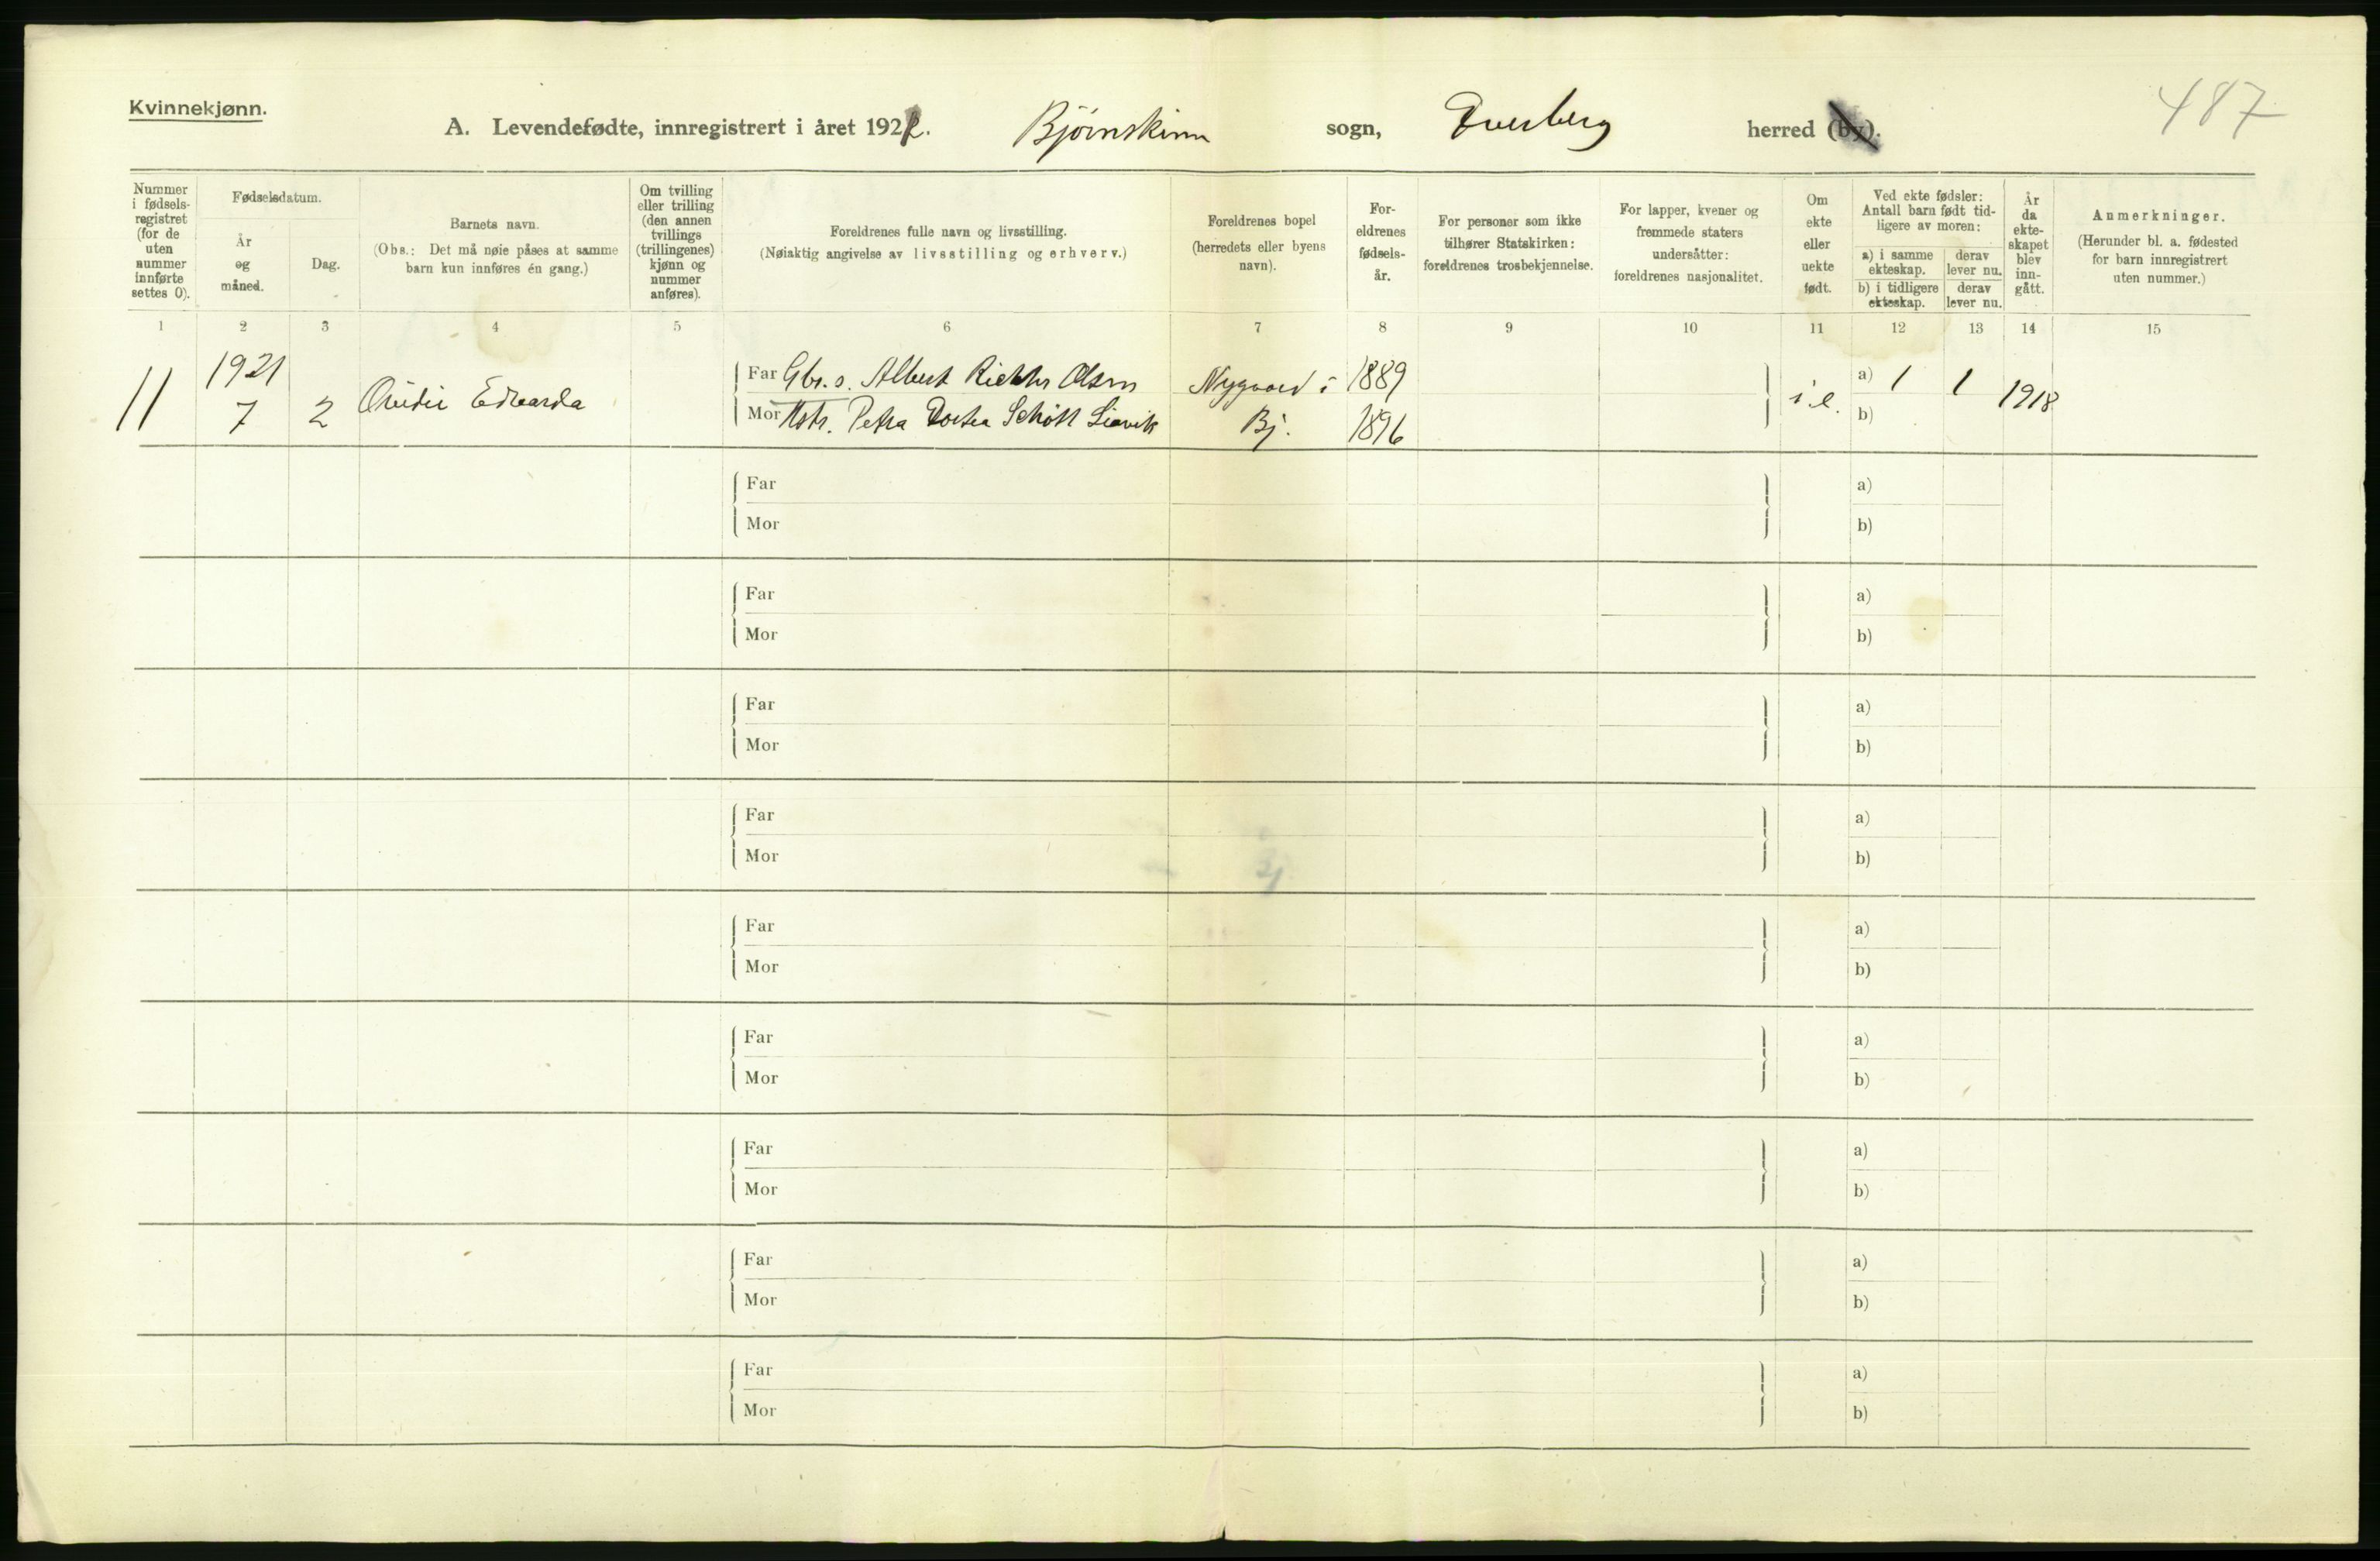 Kvinnekjønn.
A. Levendefødte, innregistrert i året 1922. Bjørnskinn sogn, Dverberg herred (by). 487
Nummer i fødsels-registret (for de uten nummer innførte settes 0).
Fødselsdatum.
År og måned.
Dag.
Barnets navn.
(Obs.: Det må nøie påses at samme barn kun innføres én gang.)
Om tvilling eller trilling (den annen tvillings (trillingenes) kjønn og nummer anføres).
Foreldrenes fulle navn og livsstilling.
(Nøiaktig angivelse av livsstilling og erhverv.)
Foreldrenes bopel (herredets eller byens navn).
For-eldrenes fødsels-år.
For personer som ikke tilhører Statskirken: foreldrenes trosbekjennelse.
For lapper, kvener og fremmede staters undersåtter: foreldrenes nasjonalitet.
Om ekte eller uekte født.
Ved ekte fødsler: Antall barn født tid-ligere av moren:
a) i samme ekteskap.
derav lever nu.
b) i tidligere ekteskap.
derav lever nu.
År da ekte-skapet blev inn-gått.
Anmerkninger.
(Herunder bl. a. fødested for barn innregistrert uten nummer.)
1 2 3 4 5 6 7 8 9 10 11 12 13 14 15
1921 Far Gbr. s. Albert Olsen Nygaard i 1889 a) 1 1
11 7 2 Edvarda Mor Hstr. Petra Dortea Schøtt Bj. 1896 i.e. b) 1918
Far a)
Mor b)
Far a)
Mor b)
Far a)
Mor b)
Far a)
Mor b)
Far a)
Mor b)
Far a)
Mor b)
Far a)
Mor b)
Far a)
Mor b)
Far a)
Mor b)